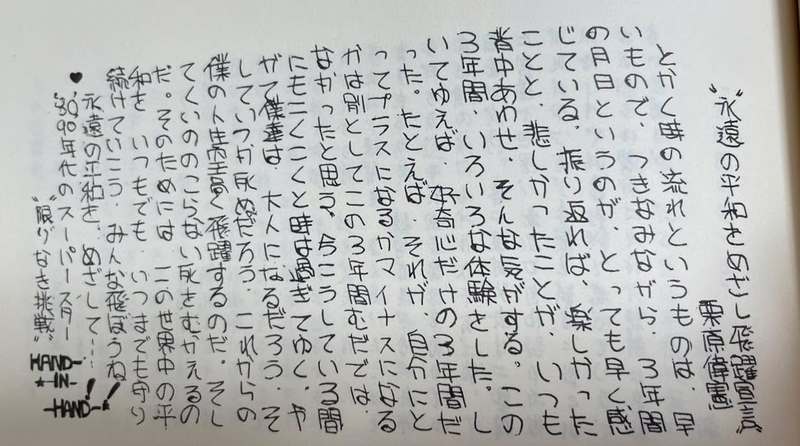 〝永遠の平和をめざし飛躍宣言〟
栗原偉憲
とかく時の流れというものは、早
いもので、つきなみながら、3年間
の月日というのが、とっても早く感
じている。振り返れば、楽しかった
ことと、悲しかったことが、いつも
背中あわせ、そんな気がする。この
3年間、いろいろな体験をした。し
いてゆえば、好奇心だけの3年間だ
った。たとえば、それが、自分にと
ってプラスになるかマイナスになる
かは別としてこの3年間むだでは、
なかったと思う。今こうしている間
にもこくこくと時は過ぎてゆく。や
がて僕達は、大人になるだろう。そ
していつか死ぬだろう。これからの
僕の人生空高く飛躍するのだ。そし
てくいののこらない死をむかえるの
だ。そのためには、この世界中の平
和を、いつもでも、いつまでも守り
続けていこう。みんな飛ぼうね。
永遠の平和を、めざして…!!
♥'80'90年代のスーパースター
〝限りなき挑戦〟
HAND-
★-IN-
HAND-